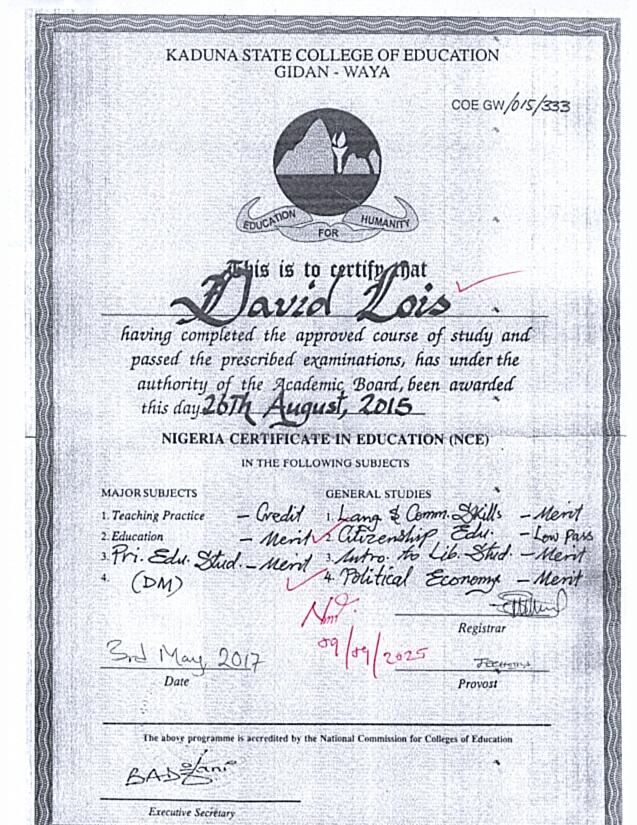 KADUNA STATE COLLEGE OF EDUCATION
GIDAN - WAYA
COE GW/015/333
EDUCATION FOR HUMANITY
This is to certify that
David Lois
having completed the approved course of study and
passed the prescribed examinations, has under the
authority of the Academic Board, been awarded
this day 26Th August, 2015
NIGERIA CERTIFICATE IN EDUCATION (NCE)
IN THE FOLLOWING SUBJECTS
MAJOR SUBJECTS
1. Teaching Practice - Credit
2. Education - Merit
3. Pri. Edu. Stud. - Merit
4. (DM)
GENERAL STUDIES
1. Lang & Comm. Skills - Merit
2. Citizenship Edu. - Low Pass
3. Intro. to Lib. Stud. - Merit
4. Political Economy - Merit
09/09/2025
Registrar
3rd May, 2017
Date
Provost
The above programme is accredited by the National Commission for Colleges of Education
Executive Secretary